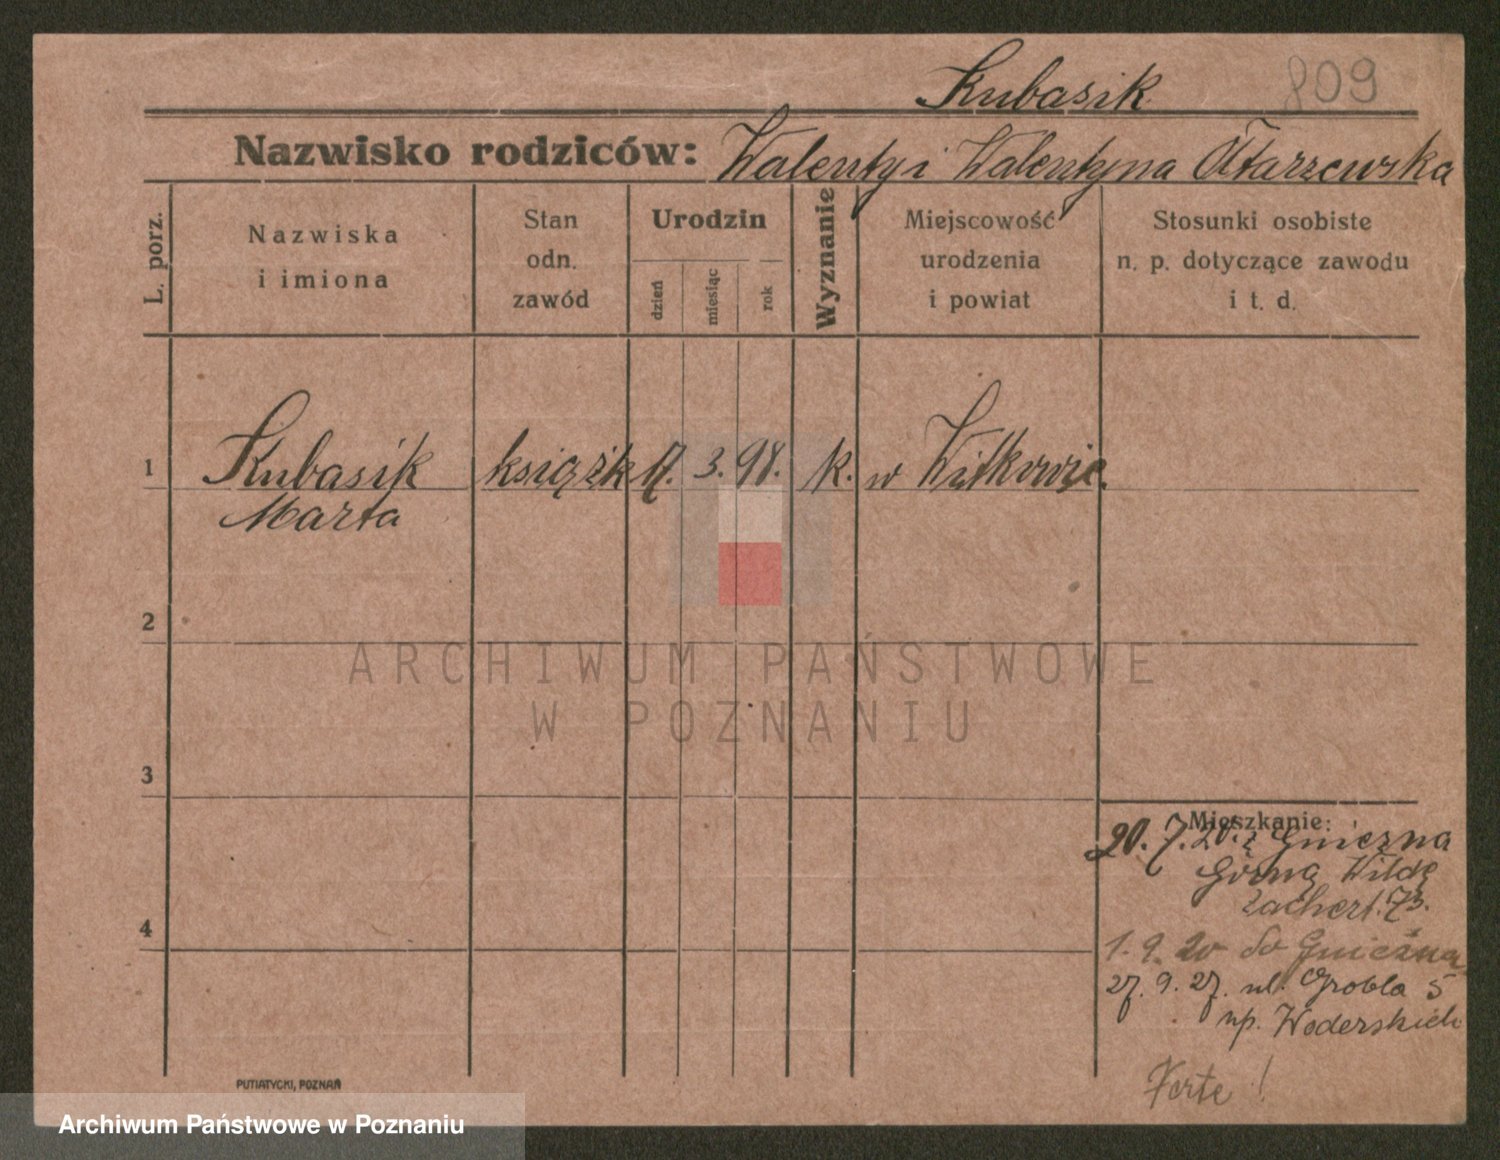 Kubasik 809
Nazwisko rodziców: Walenty i Walentyna Otarzewska
L. porz.
Nazwiska
i imiona
Stan
odn.
zawód
Urodzin
dzień
miesiąc
rok
Wyznanie
Miejscowość
urodzenia
i powiat
Stosunki osobiste
n. p. dotyczące zawodu
i t. d.
1 Kubasik książk 17. 3. 98. k. w Witkowie.
Marta
2
ARCHIWUM PAŃSTWOWE
W POZNANIU
3
Mieszkanie:
20. 7. 20. z Gniezna
Górną Wildę
73.
4
1. 9. 20 do Gniezna
27. 9. 27. ul. Grobla 5
np. Woderskich
!
PUTIATYCKI, POZNAŃ
Archiwum Państwowe w Poznaniu